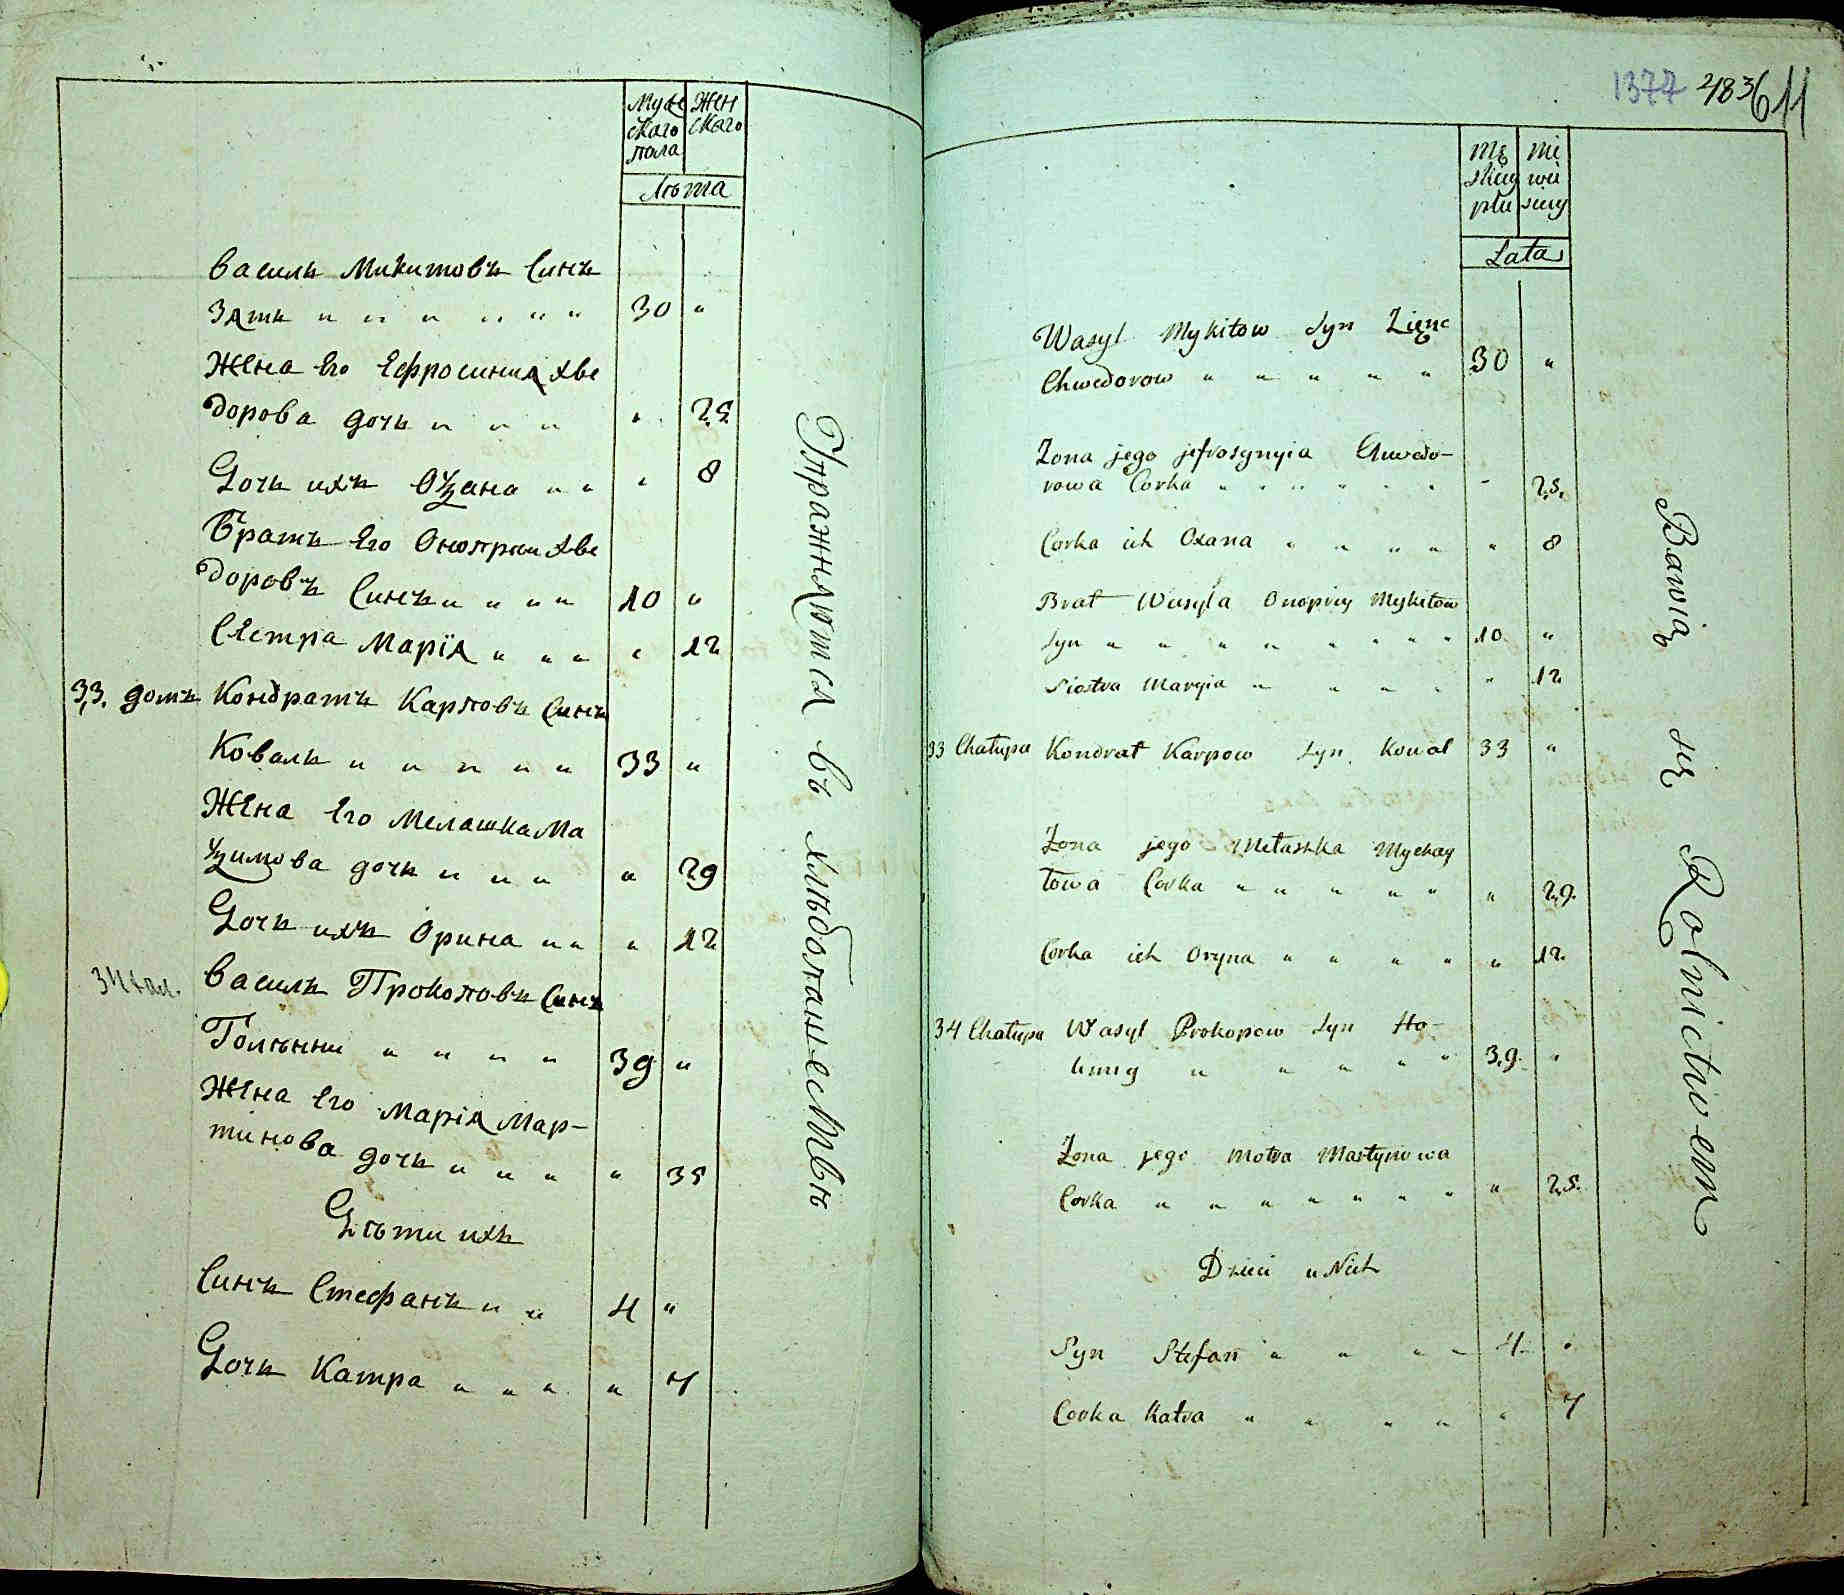 Муже
скаго
пола
Жен
скаго
Лѣта
Василь Микитовъ Синъ
Зять " " " " " " 30 "
Жена Его Ефросиния Хве
дорова дочь " " " " 25
Дочь ихъ Оѯана " " " 8
Братъ Его Оноприи Хве
доровъ Синъ " " " " 10 "
Сестра Марїя " " " " 12
33. домъ Кондратъ Карповъ Синъ
Коваль " " " " " 33 "
Жена Его Мелашка Ма
ѯимова дочь " " " " 29
Дочь ихъ Орина " " " 12
34 хал. Василь Прокоповъ Синъ
39 "
Жена Его Марїя Мар-
тинова дочь " " " " 35
Дѣти ихъ
Синъ Стефанъ " " 4 "
Дочь Катра " " " " 7
Упражняются въ хлѣбопашествѣ
1377 483 611
Mę
skiey
płci
Lata
Wasyl Mykitow Syn Zięc
Chwedorow " " " " " 30 "
Zona jego jefrosynyia Chwedo-
rowa Corka " " " " " " - 25.
Corka ich Oxana " " " " " 8
Brat Wasyla Onopriy Mykitow
Syn " " " " " " " " 10 "
Siostra Maryia " " " " " 12
33 Chałupa Kondrat Karpow Syn Kowal 33 "
Zona jego Mełashka Mychay
łowa Corka " " " " " " 29.
Corka ich Oryna " " " " " 12.
34 Chałupa Wasyl Prokopow Syn Ho-
" " " " " 39. "
Zona jego Motra Martynowa
Corka " " " " " " " " 25.
Dzieci u Nich
Syn Stefan " " " " 4. "
Corka Katra " " " " " 7
Bawią się Rolnictwem